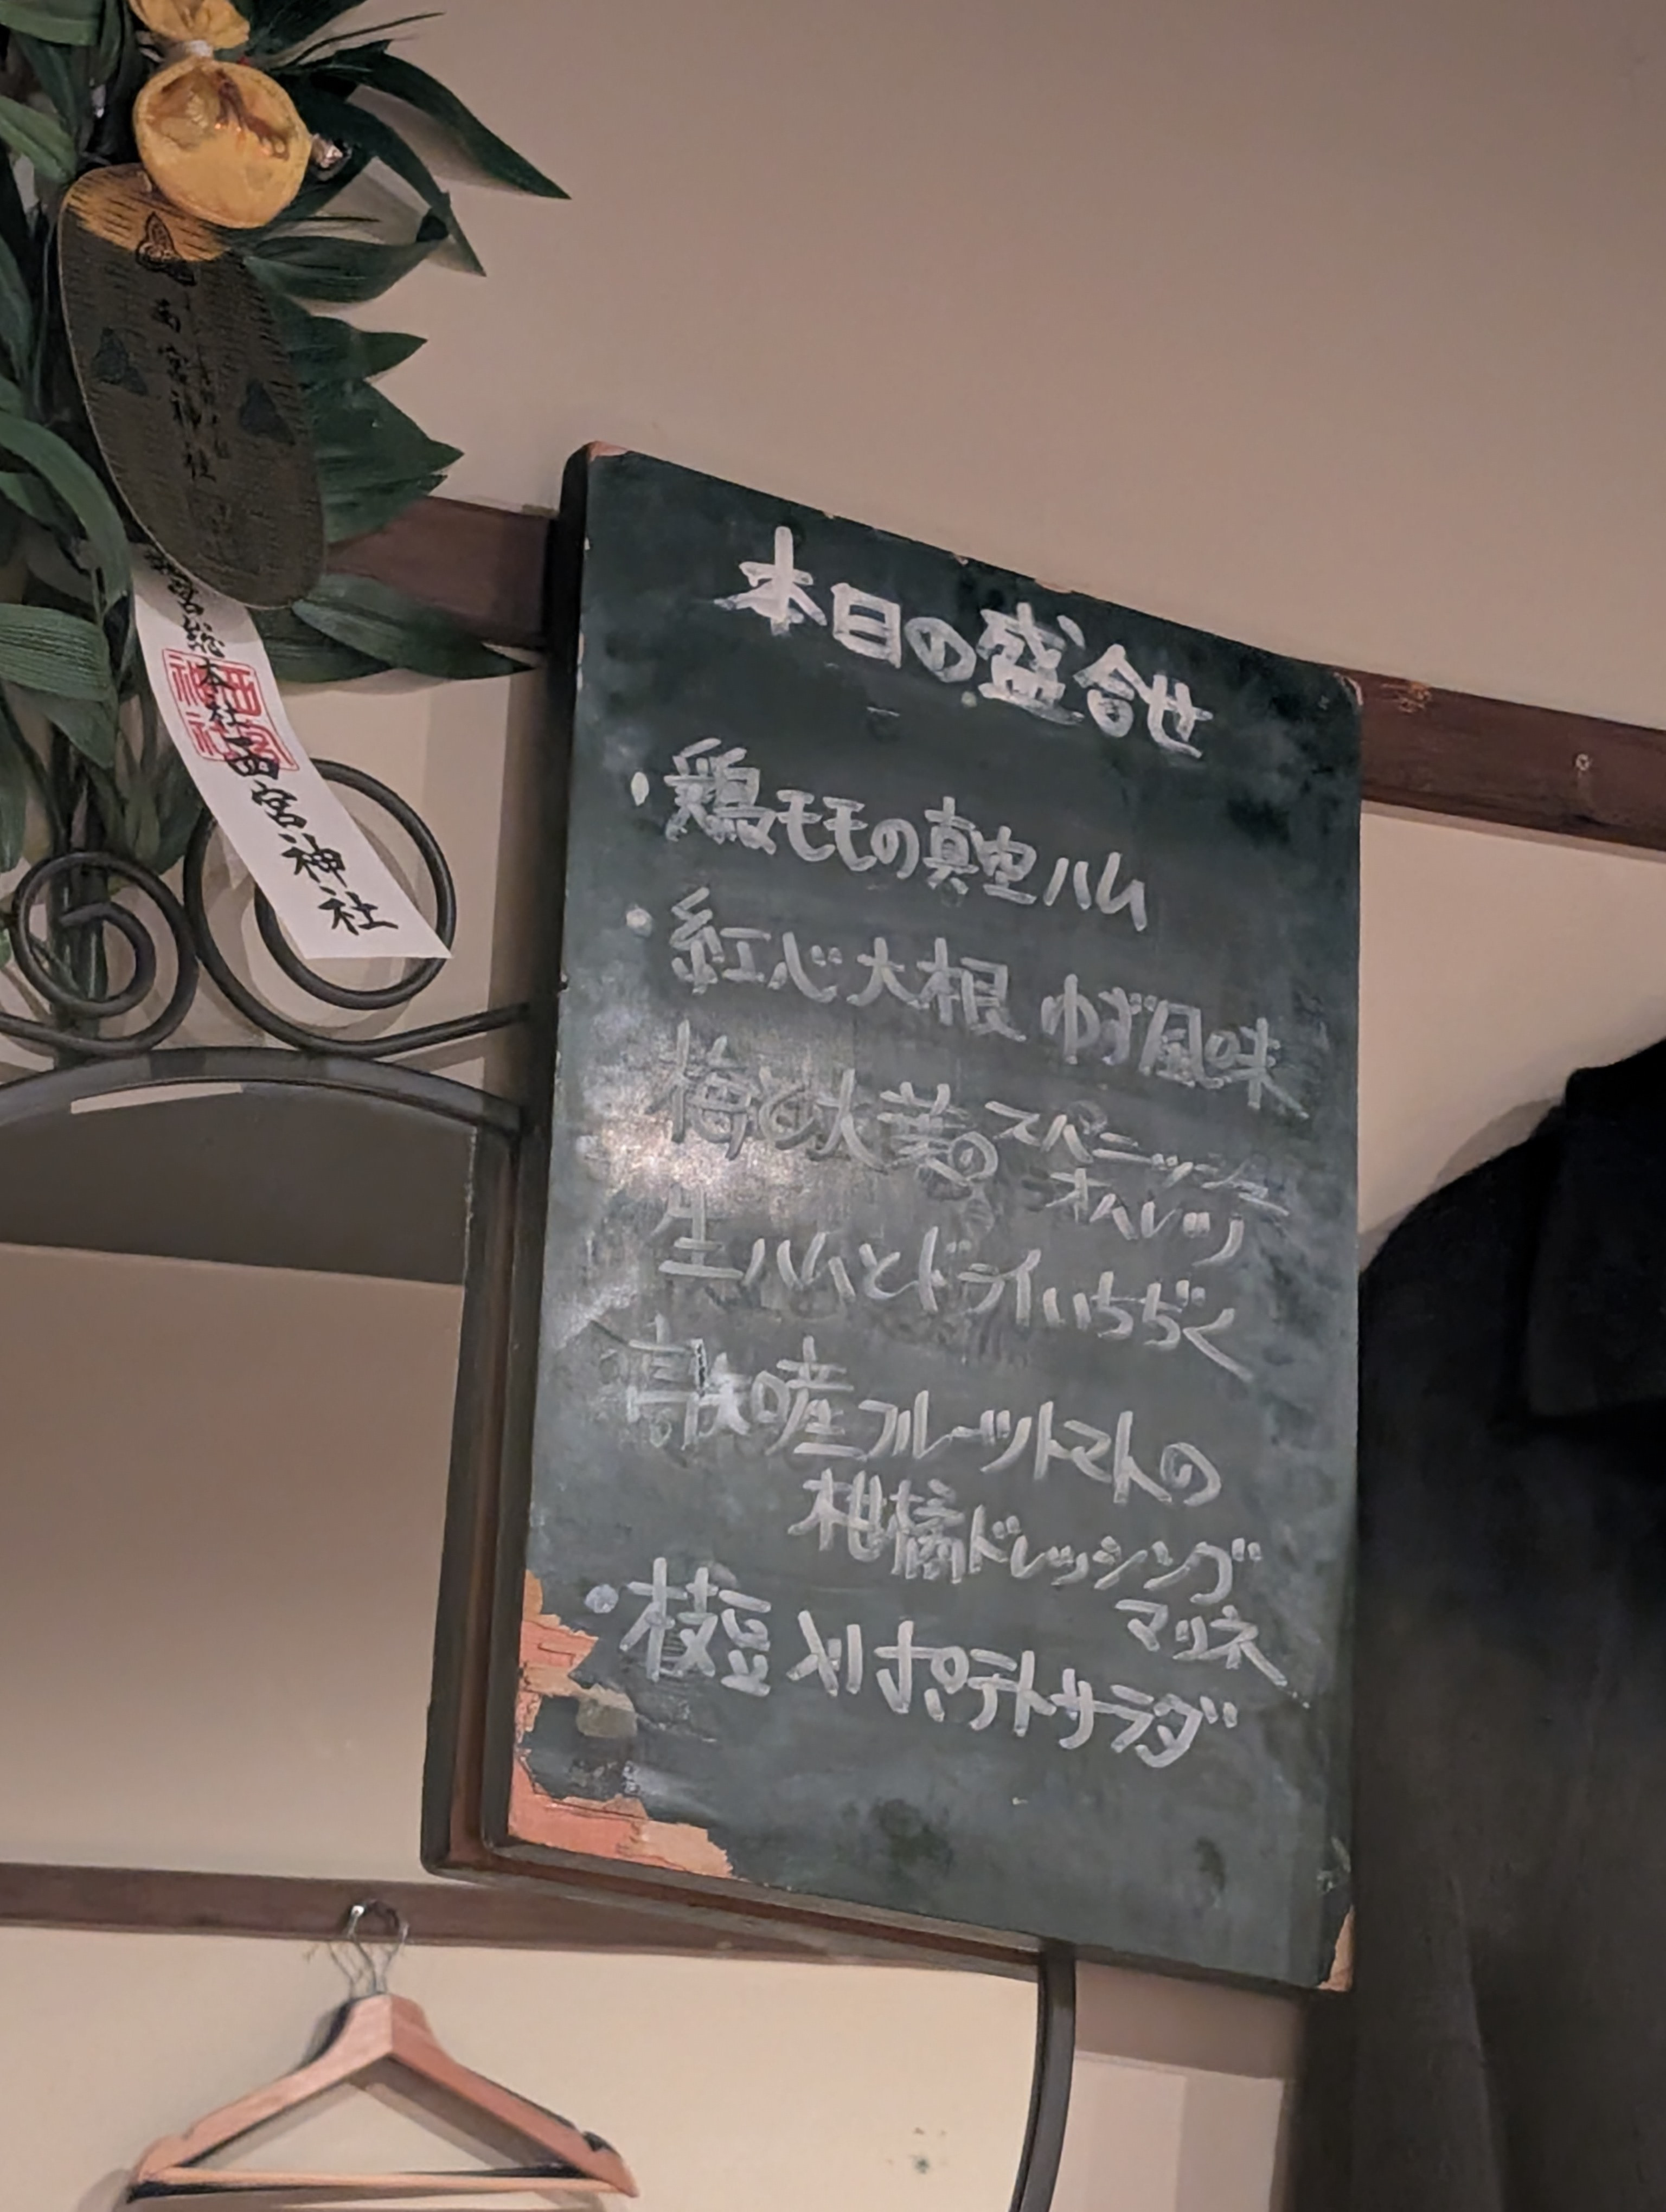 本日の盛合せ
・鶏モモの真空ハム
・紅心大根 ゆず風味
梅と大葉のスペニッシュ
オムレツ
生ハムとドライいちぢく
高知産フルーツトマトの
柑橘ドレッシング
マリネ
・枝豆入りポテトサラダ
西宮神社
宮総本社西宮神社
西宮
神社